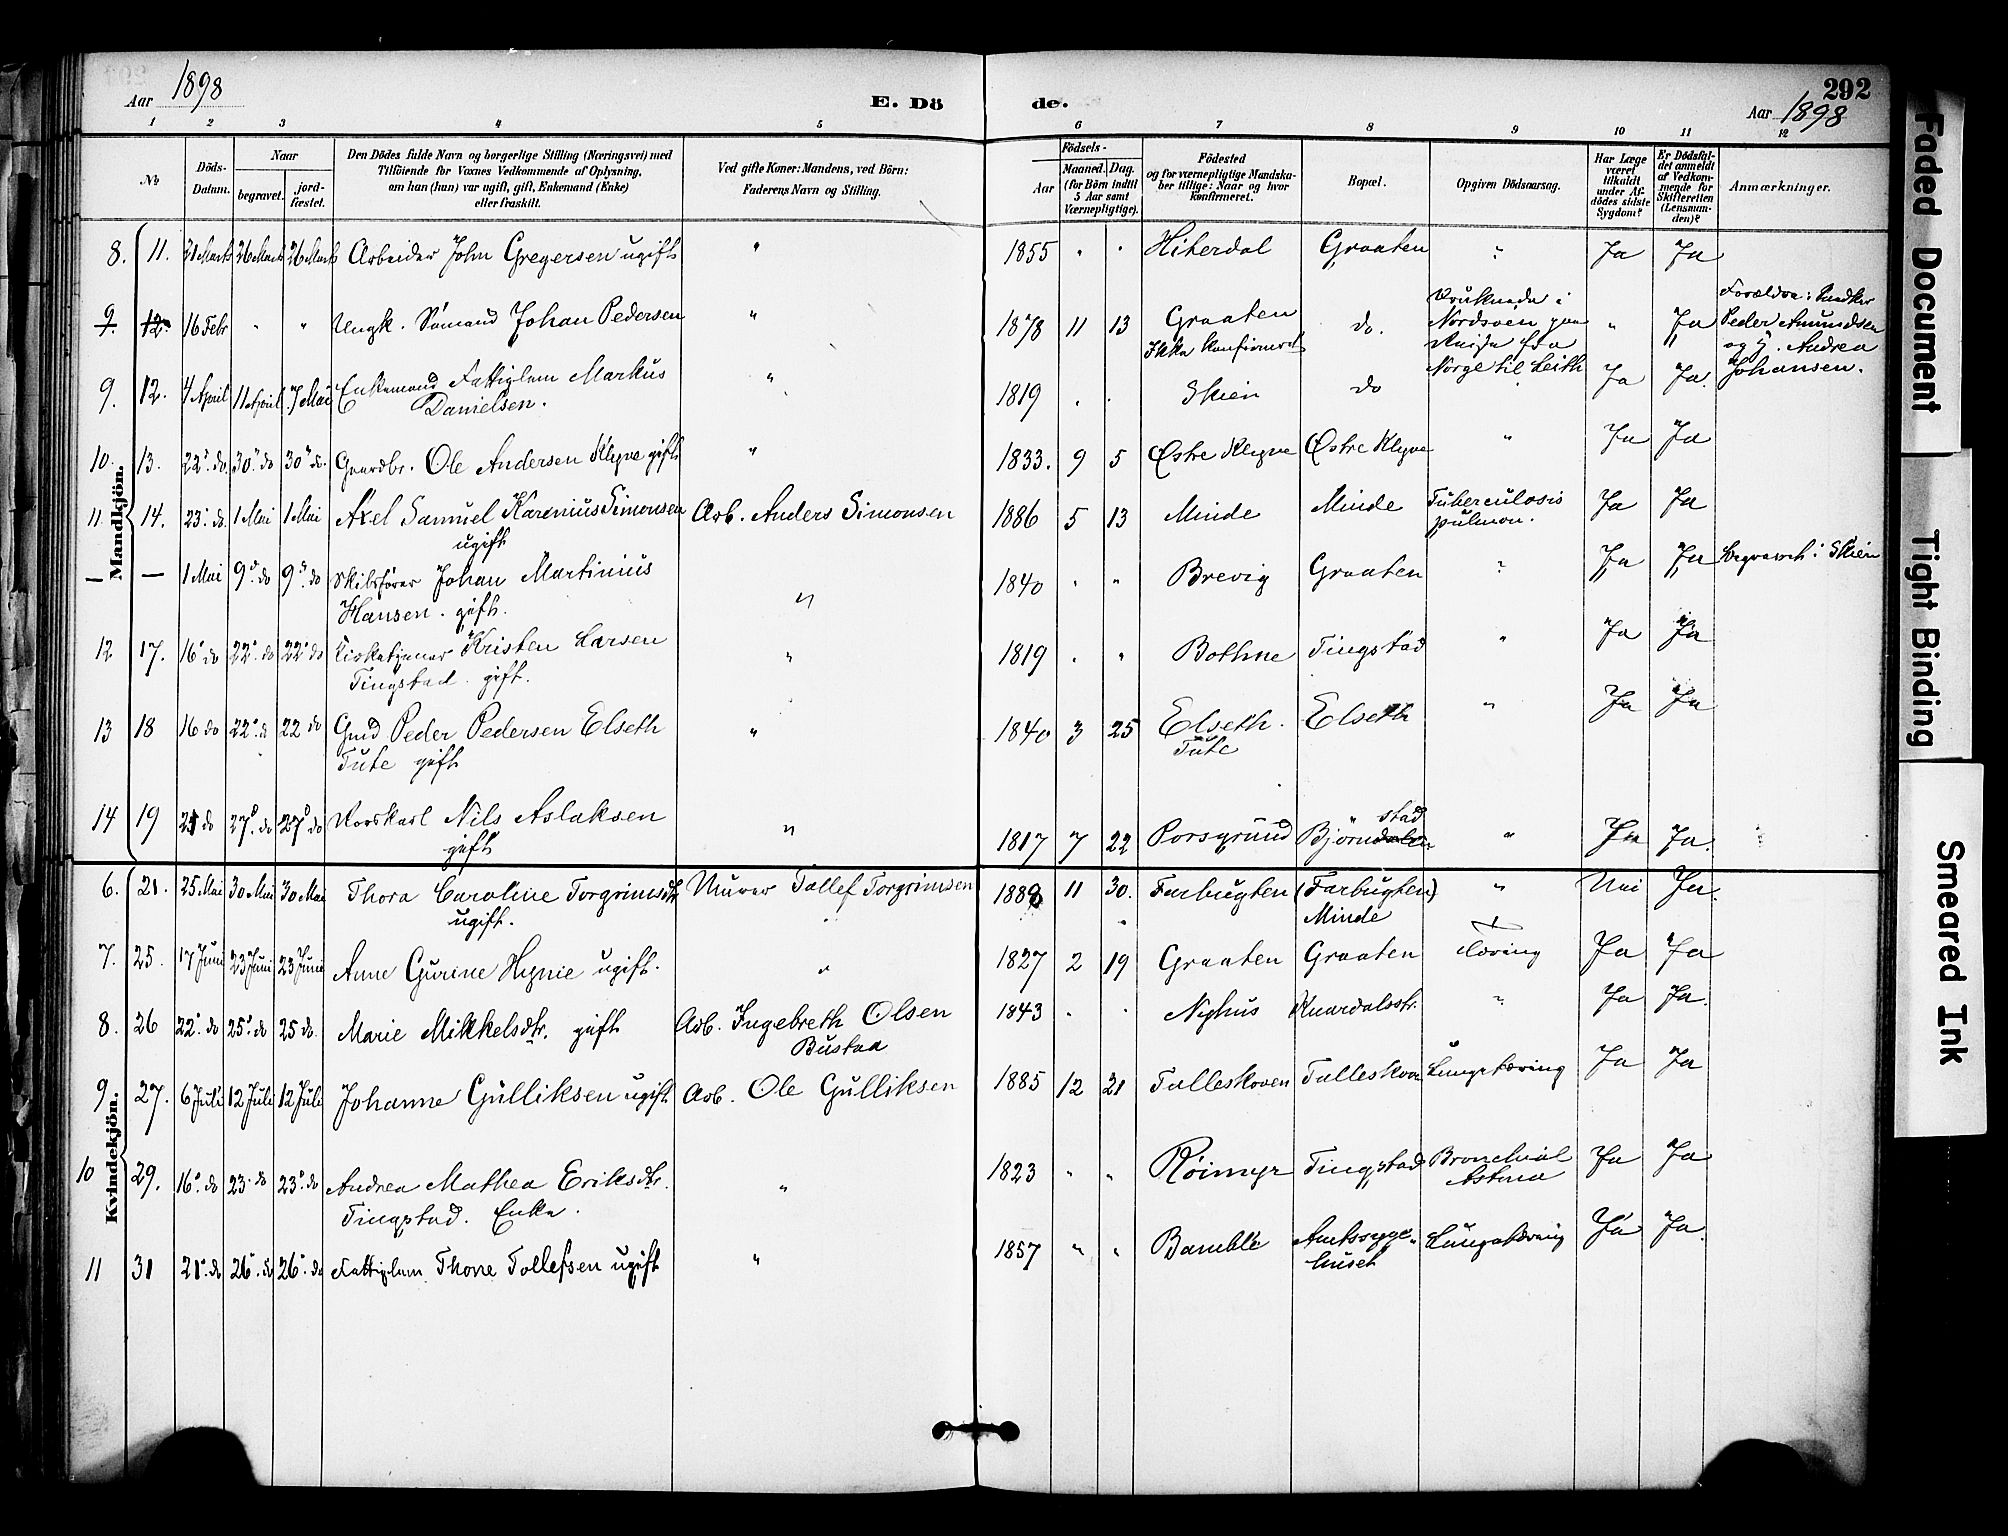 Aar 1898 E. Dö de. 292
Aar 1898
1 2 3 4 5 6 7 8 9 10 11 12
№ Döds-Datum. Naar begravet. jord-fæstet. Den Dödes fulde Navn og borgerlige Stilling (Næringsvei) med Tilföiende for Voxnes Vedkommende af Oplysning, om han (hun) var ugift, gift, Enkemand (Enke) eller fraskilt. Ved gifte Koner: Mandens, ved Börn: Faderens Navn og Stilling. Födsels- Aar Maaned. Dag. (for Börn indtil 5 Aar samt Værnepligtige). Födested og for værnepligtige Mandskaber tillige: Naar og hvor konfirmeret. Bopæl. Opgiven Dödsaarsag. Har Læge været tilkaldt under Afdödes sidste Sygdom? Er Dödsfaldet anmeldt af Vedkommende for Skifteretten (Lensmanden)? Anmærkninger.
Mandkjön.
8. 11. 21 Marts 26 Marts 26 Marts Arbeider John Gregersen ugift " 1855 " " Hiterdal Graaten " Ja Ja
9. 12. 16 Febr " " Ungk. Sömand Johan Pedersen " 1878 11 13 Graaten do. Druknede i " Ja Forældre:
Ikke konfirmert Nordsöen paa Peder Amundsen
Reise fra og Andrea
Norge til Leith Johansen.
9. 12. 4 April 11 April 7 Mai Enkemand Fattiglem Markus " 1819 " " Skien do " Ja Ja.
Danielsen.
10. 13. 22. do. 30. do 30 do. Gaardbr. Ole Andersen Klyve gift " 1833. 9 5 Østre Klyve Østre Klyve " Ja Ja
11 14. 23. do. 1 Mai 1 Mai Axel Samuel Karenius Simonsen Arb. Anders Simonsen 1886 5 13 Minde Minde Tuberculosis Ja Ja
ugift pulmon.
— — 1 Mai 9. do 9. do Skibsförer Johan Martinius " 1840 " " Brevig Graaten " Ja Ja begravet i Skien
Hansen. gift.
12 17. 16 do 22. do 22 do Kirketjener Kristen Larsen " 1819 " " Bothne Tingstad " Ja Ja
Tingstad. gift.
13 18 16 do 22. d 22 do Gmd Peder Pedersen Elseth " 1840 3 25 Elseth. Elseth " Ja Ja
Tufte gift Tufte
14 19 21 do 27. do 27 do Nils Aslaksen " 1817 7 22 Porsgrund Björndalen stad " Ja Ja.
gift
Kvindekjön.
6. 21. 25 Mai 30 Mai 30 Mai Thora Caroline Torgrimsdtr Murer Tollef Torgrimsen 1880 11 30. Farbugten (Farbugten) " Nei Ja.
ugift. Minde
7. 25. 17 Juni 23 Juni 23 Juni Anne Gurine Hynie ugift. " 1827 2 19 Graaten Graaten Tæring Ja Ja
8. 26 22. do 25. do 25 do. Marie Mikkelsdtr. gift Arb. Ingebreth Olsen 1843 " " Nyhus Knardalsstr. " Ja Ja.
Bustad
9. 27. 6 Juli 12 Juli 12 Juli Johanne Gulliksen ugift Arb. Ole Gulliksen 1885 12 21 Tulleskoven Tulleskov Lungetæring Ja Ja
10 29. 16. do 23. do 23. do Andrea Mathea Eriksdtr. " 1823 " " Röimyr Tingstad Bronchial Ja Ja
Tingstad. Enke. Astma
11 31 21. do 26. do 26. do Fattiglem Thone Tollefsen ugift " 1857 " " Bamble Amtssyge- Lungetæring Ja Ja.
huset
Faded Document
Tight Binding
Smeared Ink